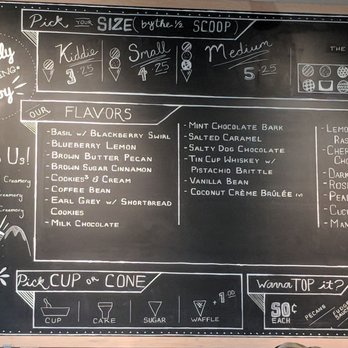 Pick YOUR SIZE (by the ½ SCOOP)
Kiddie
3.25
Small
4.25
Medium
5.25
THE
OUR FLAVORS
-Basil w/ Blackberry Swirl
-Blueberry Lemon
-Brown Butter Pecan
-Brown Sugar Cinnamon
-Cookies³ & Cream
-Coffee Bean
-Earl Grey w/ Shortbread
Cookies
-Milk Chocolate
-Mint Chocolate Bark
-Salted Caramel
-Salty Dog Chocolate
-Tin Cup Whiskey w/
Pistachio Brittle
-Vanilla Bean
-Coconut Crème Brûlée (v)
Us!
Creamery
Creamery
Pick CUP or CONE
CUP
CAKE
SUGAR
WAFFLE
+1.00
Wanna TOP it?
50¢
EACH
PECANS